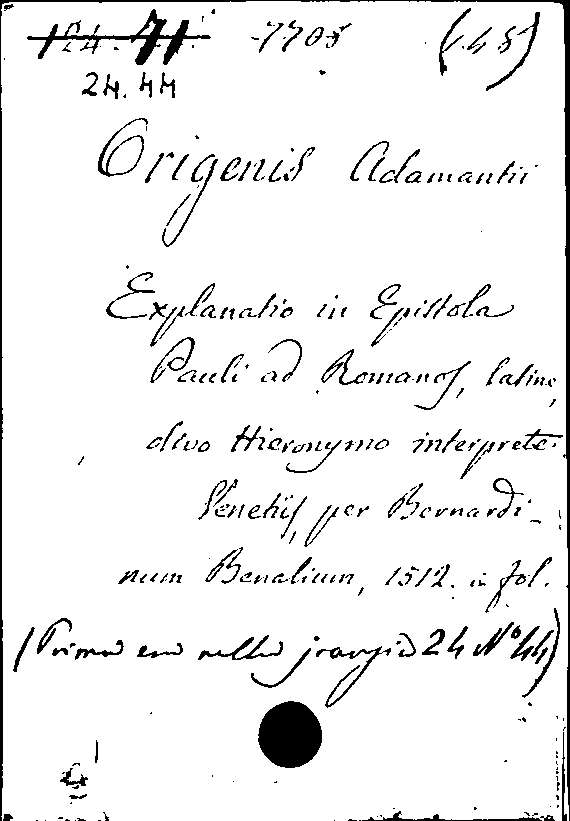 124. 71. 7705 (V. 48)
24. 44
Origenis Adamantii
Explanatio in Epistola
Pauli ad Romanos, latine,
divo Hieronymo interprete.
Venetiis, per Bernardi-
num Benalium, 1512. in fol.
(Prima era nella 24 No 44)